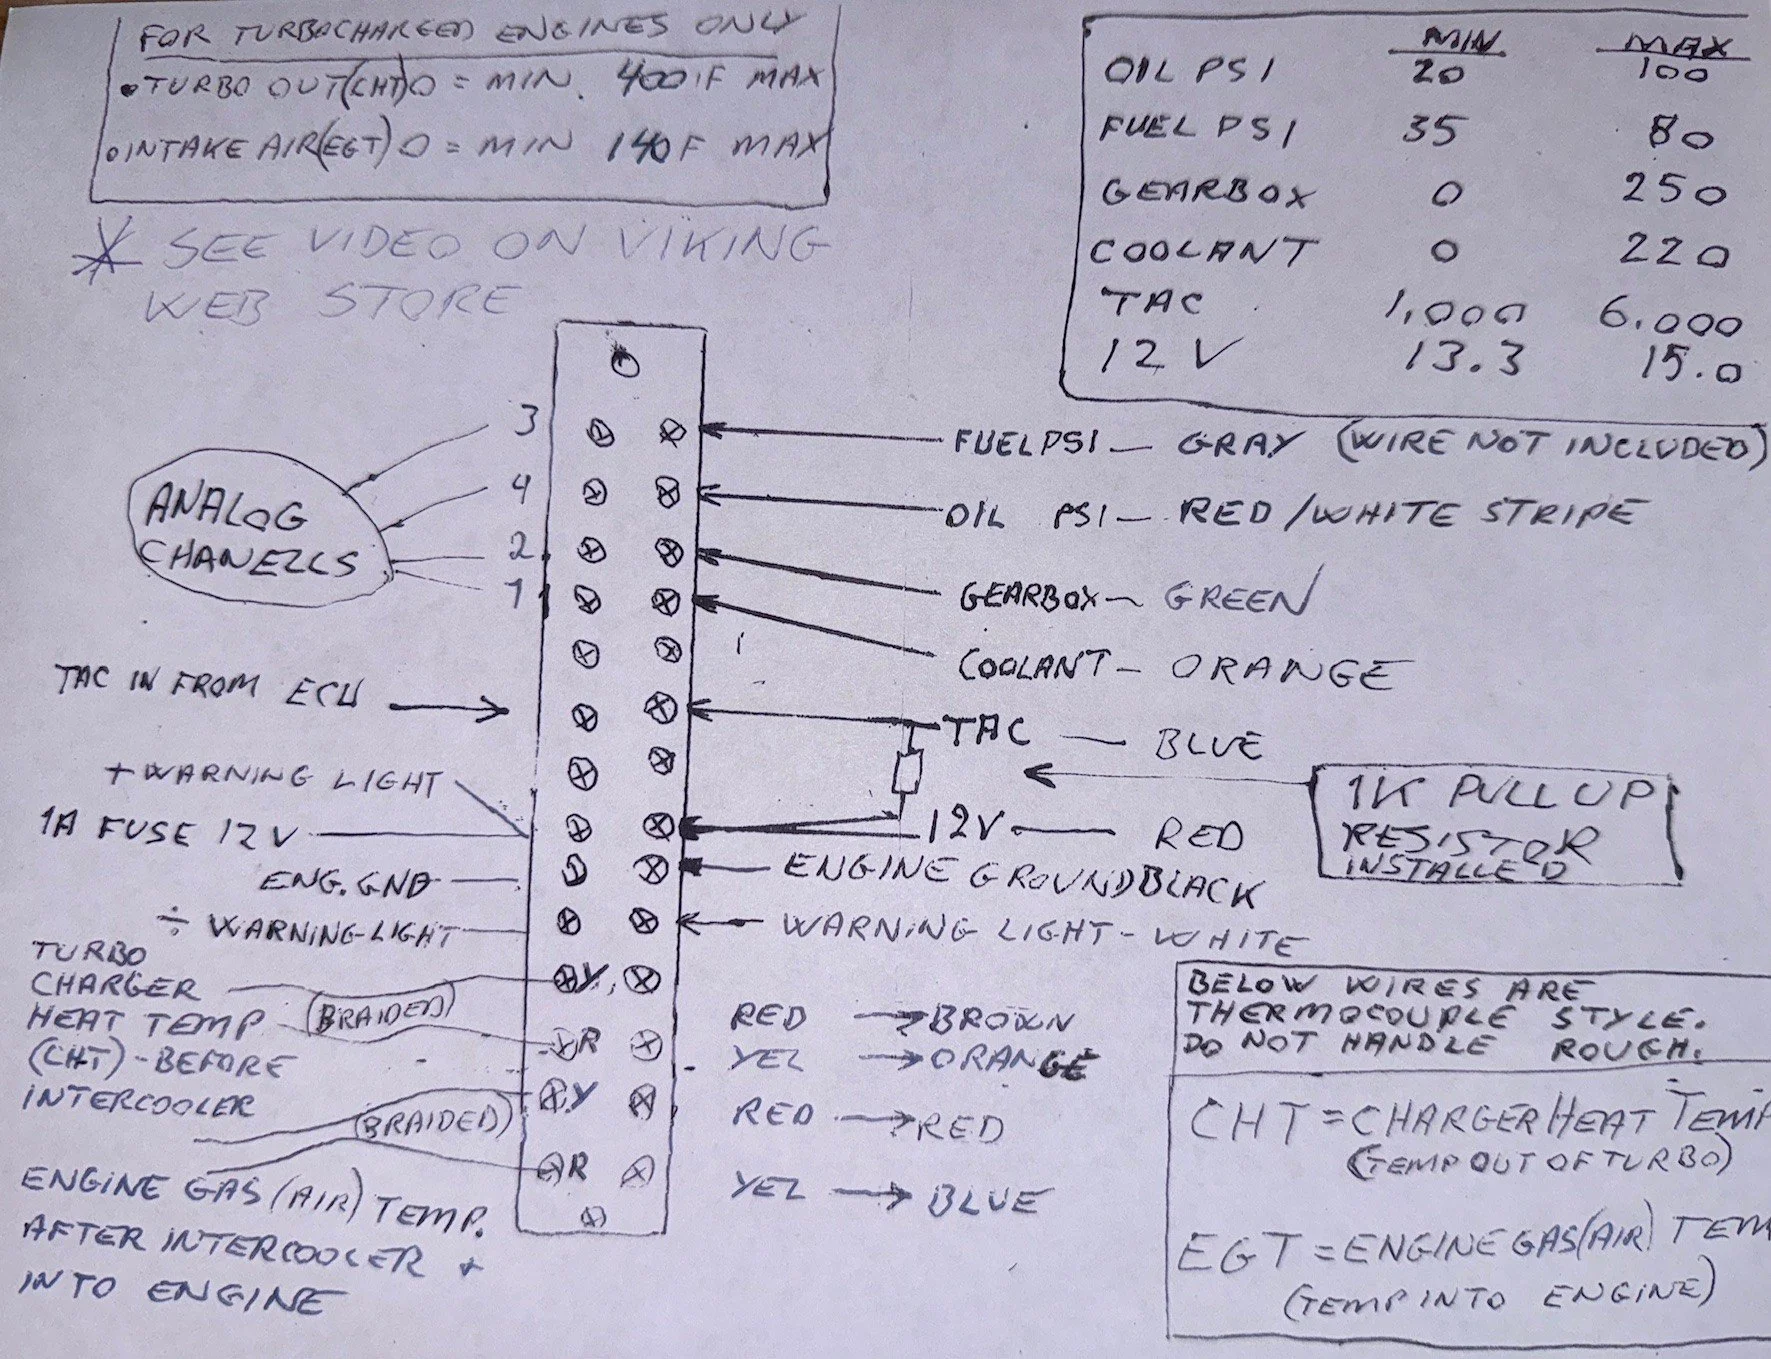 FOR TURBOCHARGED ENGINES ONLY
• TURBO OUT(CHT) 0 = MIN. 400 °F MAX
• INTAKE AIR(EGT) 0 = MIN 140 F MAX
* SEE VIDEO ON VIKING
WEB STORE
MIN MAX
OIL PSI 20 100
FUEL PSI 35 80
GEARBOX 0 250
COOLANT 0 220
TAC 1,000 6.000
12 V 13.3 15.0
ANALOG
CHANELLS
3
4
2
1
FUEL PSI — GRAY (WIRE NOT INCLUDED)
OIL PSI — RED/WHITE STRIPE
GEARBOX — GREEN
COOLANT — ORANGE
TAC IN FROM ECU
TAC — BLUE
+ WARNING LIGHT
1K PULL UP
RESISTOR
INSTALLED
1A FUSE 12 V
12V — RED
ENG. GND
ENGINE GROUND BLACK
÷ WARNING-LIGHT
WARNING LIGHT - WHITE
TURBO
CHARGER
HEAT TEMP
(CHT)-BEFORE
INTERCOOLER
(BRAIDED)
(BRAIDED)
Y
R
Y
R
ENGINE GAS (AIR) TEMP.
AFTER INTERCOOLER +
INTO ENGINE
RED → BROWN
YEL → ORANGE
RED → RED
YEL → BLUE
BELOW WIRES ARE
THERMOCOUPLE STYLE.
DO NOT HANDLE ROUGH.
CHT = CHARGER HEAT TEMP
(TEMP OUT OF TURBO)
EGT = ENGINE GAS (AIR) TEM
(TEMP INTO ENGINE)